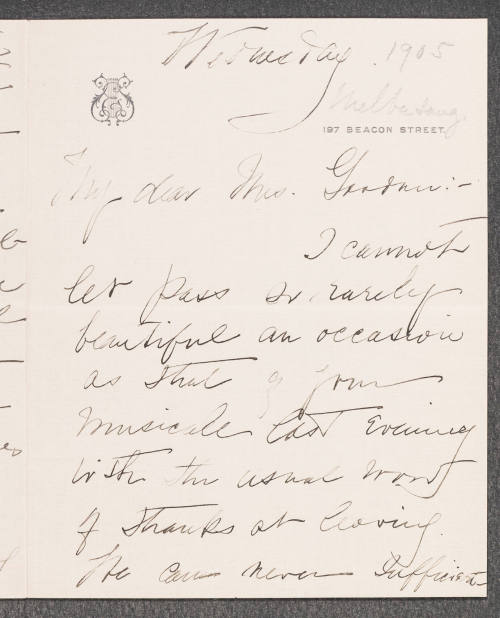 Wednesday. 1905
Melba sang
197 BEACON STREET.
My dear Mrs. Gardner:-
I cannot
let pass so rarely
beautiful an occasion
as that of your
Musicale last Evening
with the usual word
of thanks at leaving.
We can never sufficient-